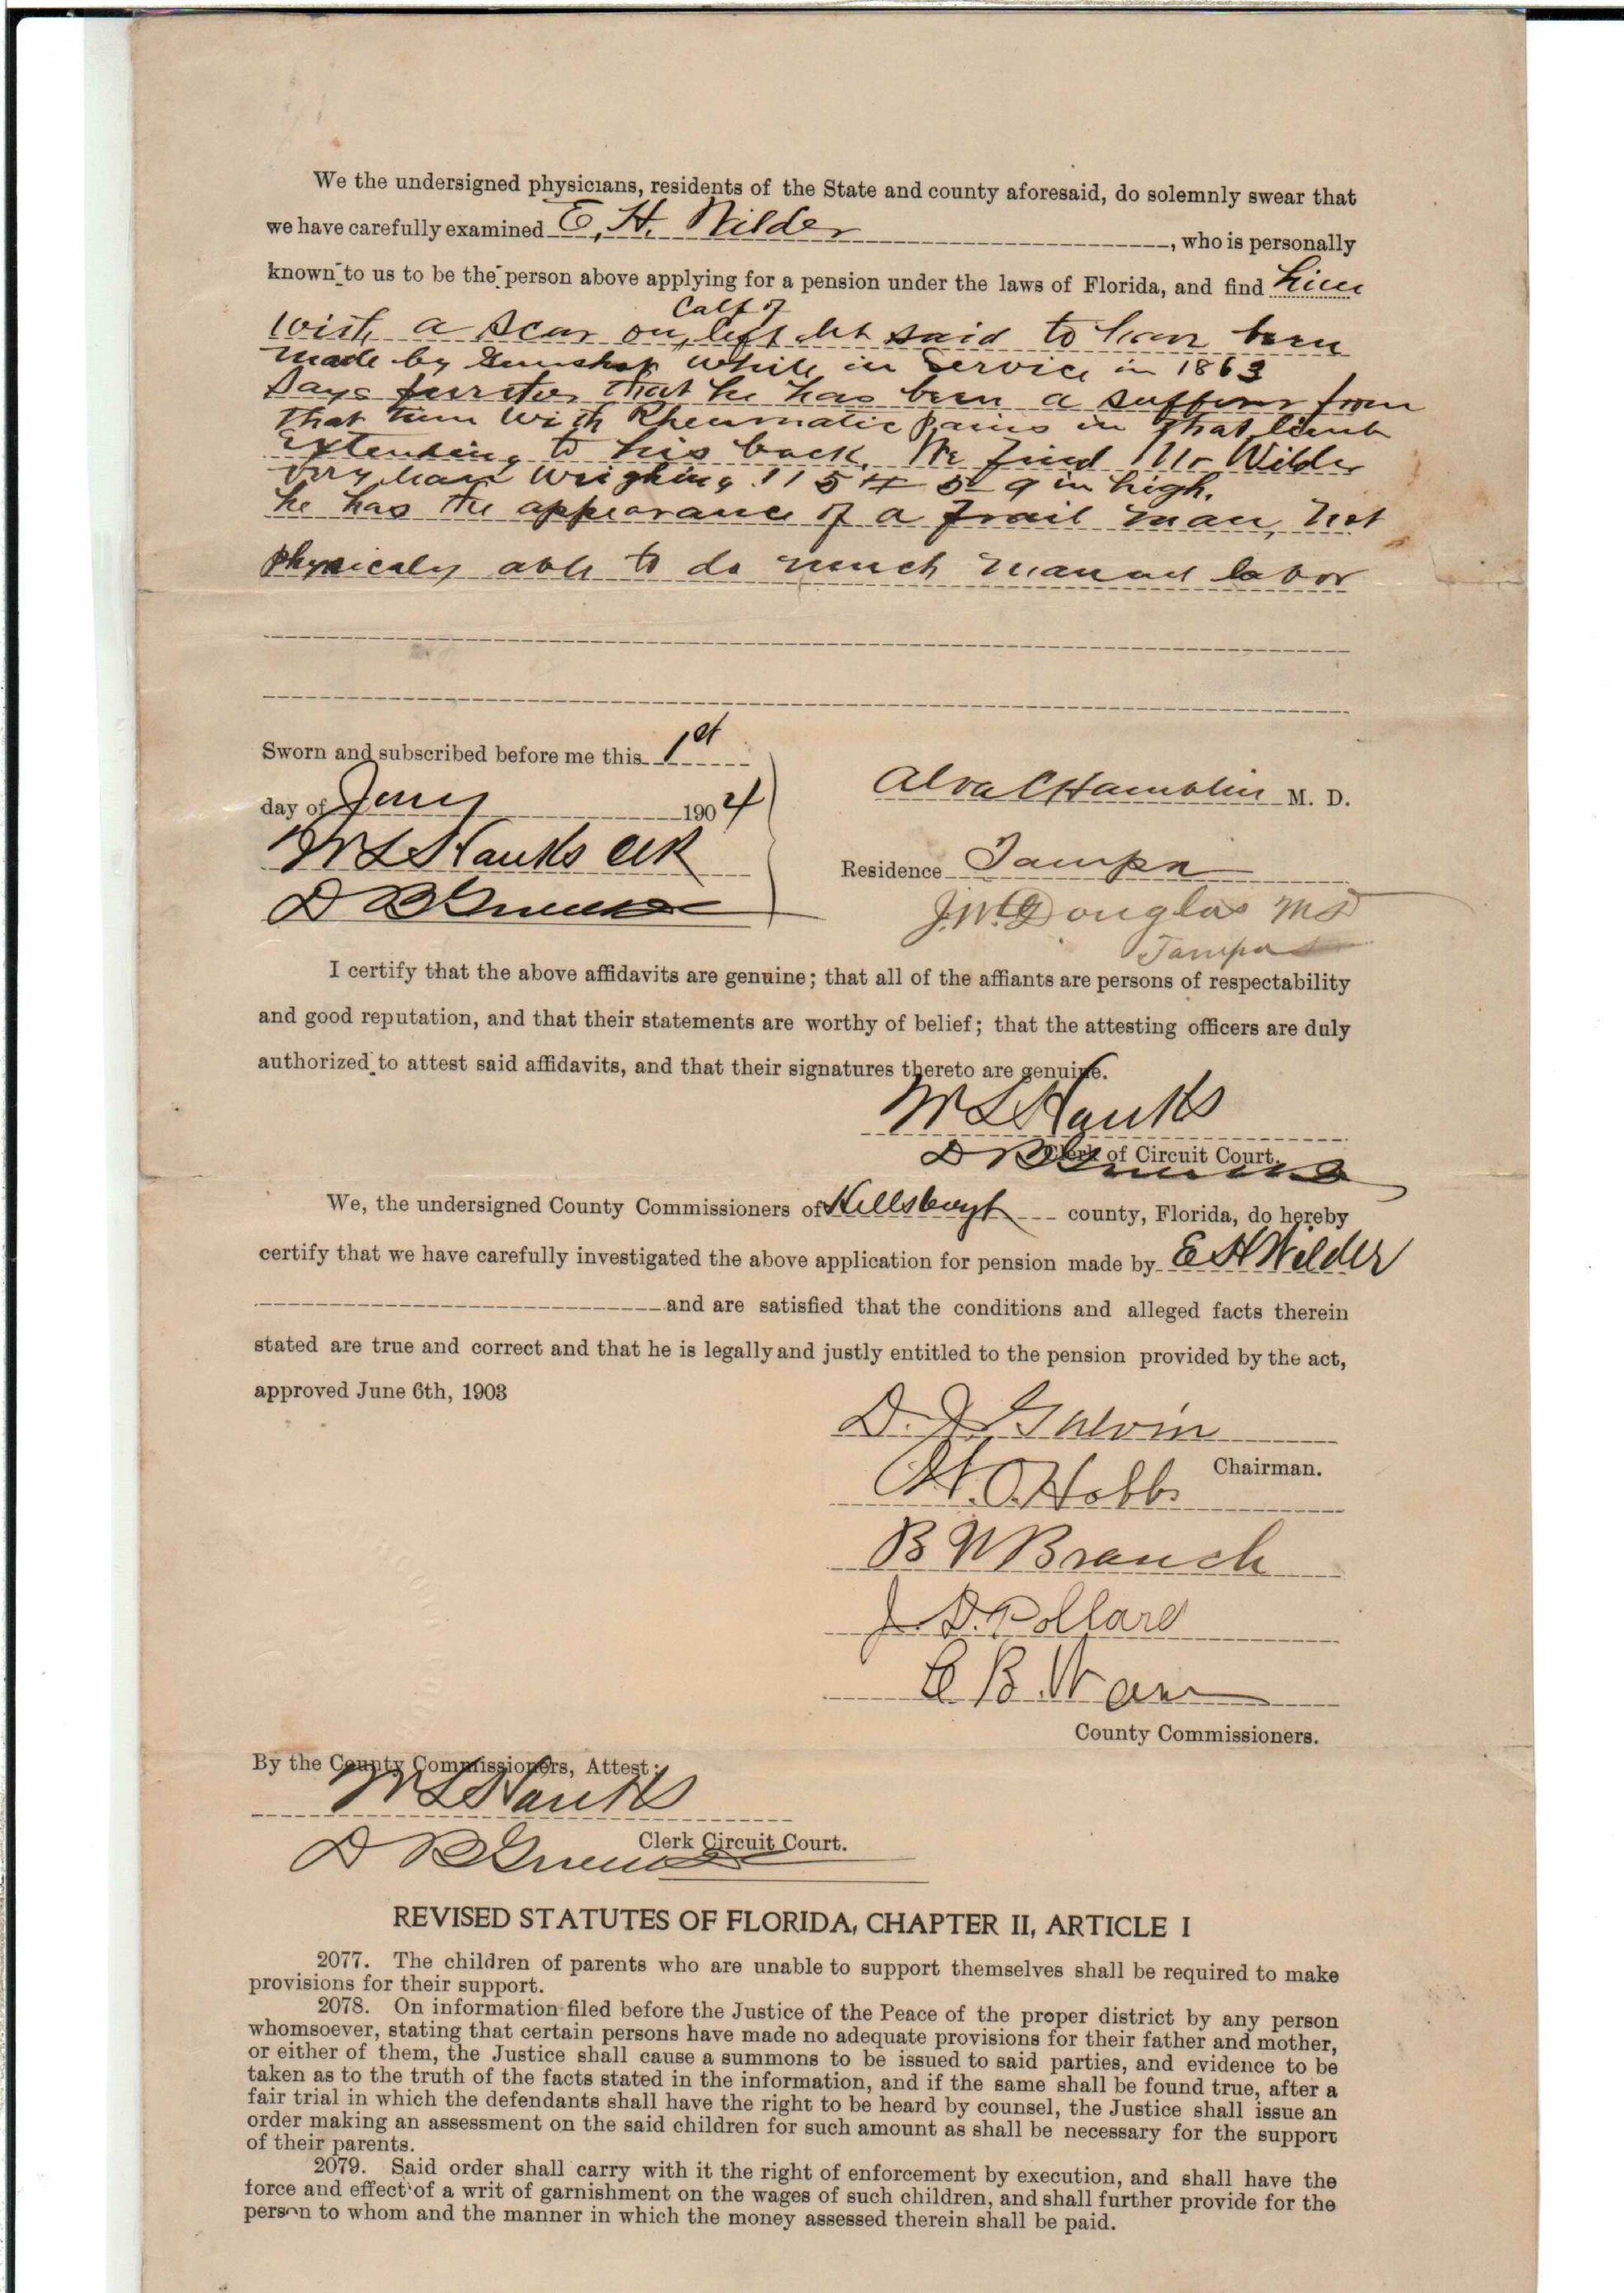 We the undersigned physicians, residents of the State and county aforesaid, do solemnly swear that
we have carefully examined E. H. Wilder, who is personally
known to us to be the person above applying for a pension under the laws of Florida, and find him
Calf of
with a scar on left said to have been
made by Gunshot while in Service in 1863
Says further that he has been a sufferer from
that time with Rheumatic pains in that limb
extending to his back. We find Mr Wilder
very lean weighing 115 # 5 - 9 in high.
he has the appearance of a frail man, not
physicaly able to do much manual labor
Sworn and subscribed before me this 1st
day of Jany 1904
Alva C Hamblin M. D.
W L Hanks Clk
Residence Tampa
D B
J. W. Douglas MD
Tampa
I certify that the above affidavits are genuine; that all of the affiants are persons of respectability
and good reputation, and that their statements are worthy of belief; that the attesting officers are duly
authorized to attest said affidavits, and that their signatures thereto are genuine.
W L Hanks
Clerk of Circuit Court.
D B
We, the undersigned County Commissioners of county, Florida, do hereby
certify that we have carefully investigated the above application for pension made by E H Wilder
and are satisfied that the conditions and alleged facts therein
stated are true and correct and that he is legally and justly entitled to the pension provided by the act,
approved June 6th, 1903
D. J. Galvin
Chairman.
W. O. Hobbs
B W Branch
J. D. Pollard
C B.
County Commissioners.
By the County Commissioners, Attest:
W L Hanks
Clerk Circuit Court.
D B
REVISED STATUTES OF FLORIDA, CHAPTER II, ARTICLE I
2077. The children of parents who are unable to support themselves shall be required to make
provisions for their support.
2078. On information filed before the Justice of the Peace of the proper district by any person
whomsoever, stating that certain persons have made no adequate provisions for their father and mother,
or either of them, the Justice shall cause a summons to be issued to said parties, and evidence to be
taken as to the truth of the facts stated in the information, and if the same shall be found true, after a
fair trial in which the defendants shall have the right to be heard by counsel, the Justice shall issue an
order making an assessment on the said children for such amount as shall be necessary for the support
of their parents.
2079. Said order shall carry with it the right of enforcement by execution, and shall have the
force and effect of a writ of garnishment on the wages of such children, and shall further provide for the
person to whom and the manner in which the money assessed therein shall be paid.